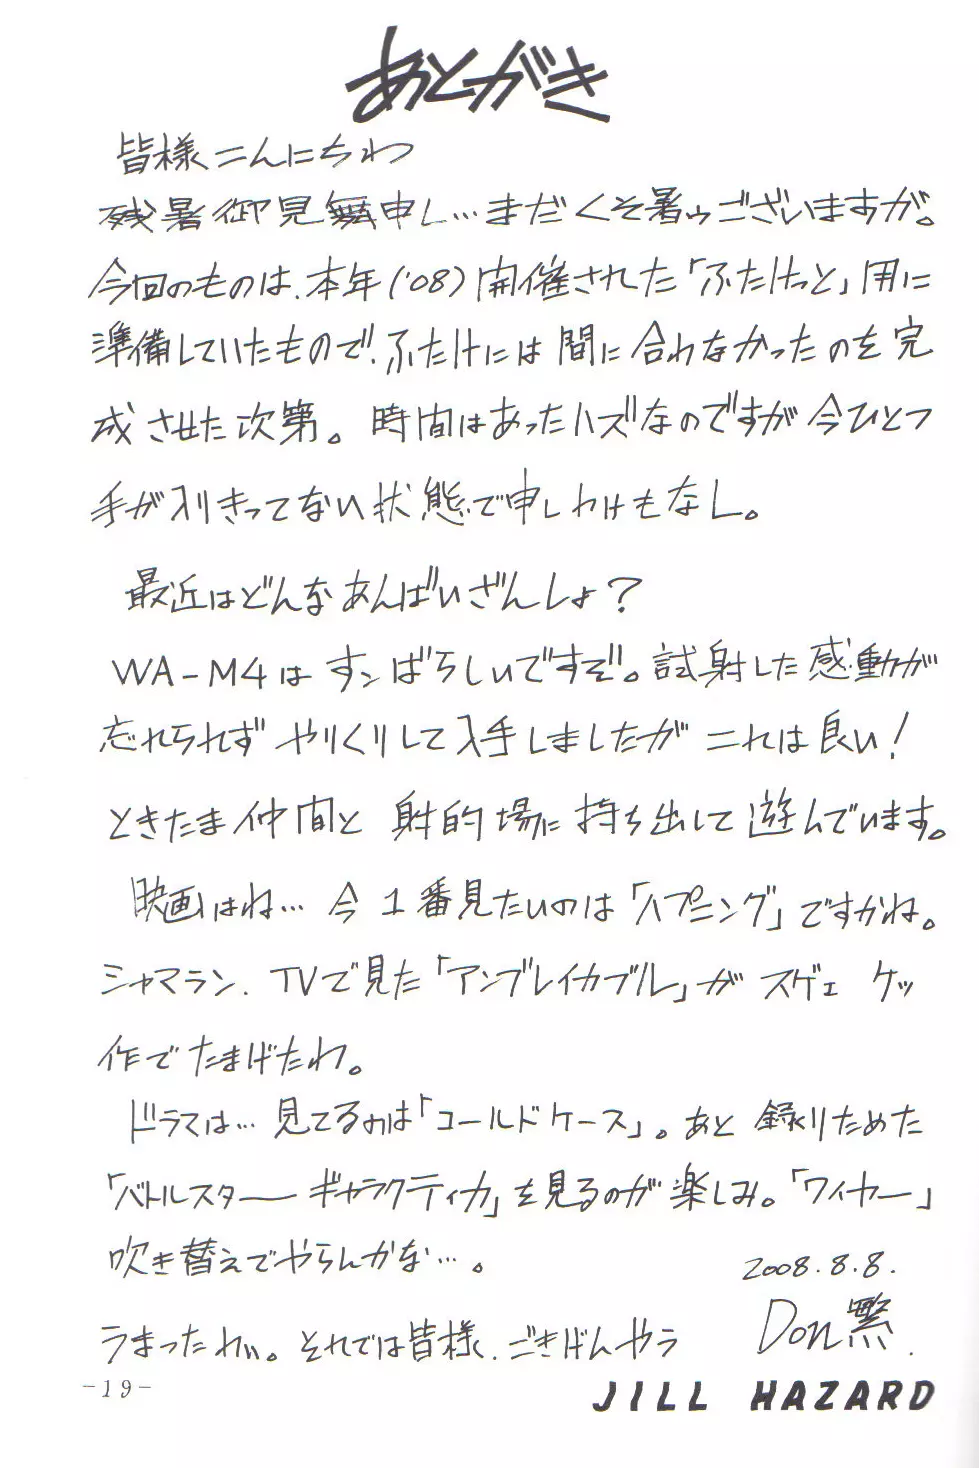 あとがき
皆様こんにちわ
残暑御見舞申し…まだくそ暑ゥございますが。
今回のものは、本年('08)開催された「ふたけっと」用に
準備していたもので、ふたけには間に合わなかったのを完
成させた次第。時間はあったハズなのですが今ひとつ
手が入りきってない状態で申しわけもなし。
最近はどんなあんばいざんしょ?
WA-M4はすンばらしいですぞ。試射した感動が
忘れられずやりくりして入手しましたがこれは良い!
ときたま仲間と射的場に持ち出して遊んでいます。
映画はね…今1番見たいのは「ハプニング」ですかね。
シャマラン、TVで見た「アンブレイカブル」がスゲェケッ
作でたまげたわ。
ドラマは…見てるのは「コールドケース」。あと録りためた
「バトルスターギャラクティカ」を見るのが楽しみ。「ワイヤー」
吹き替えでやらんかな…。
2008.8.8.
うまったわい。それでは皆様、ごきげんやう
Don繁
-19-
JILL HAZARD